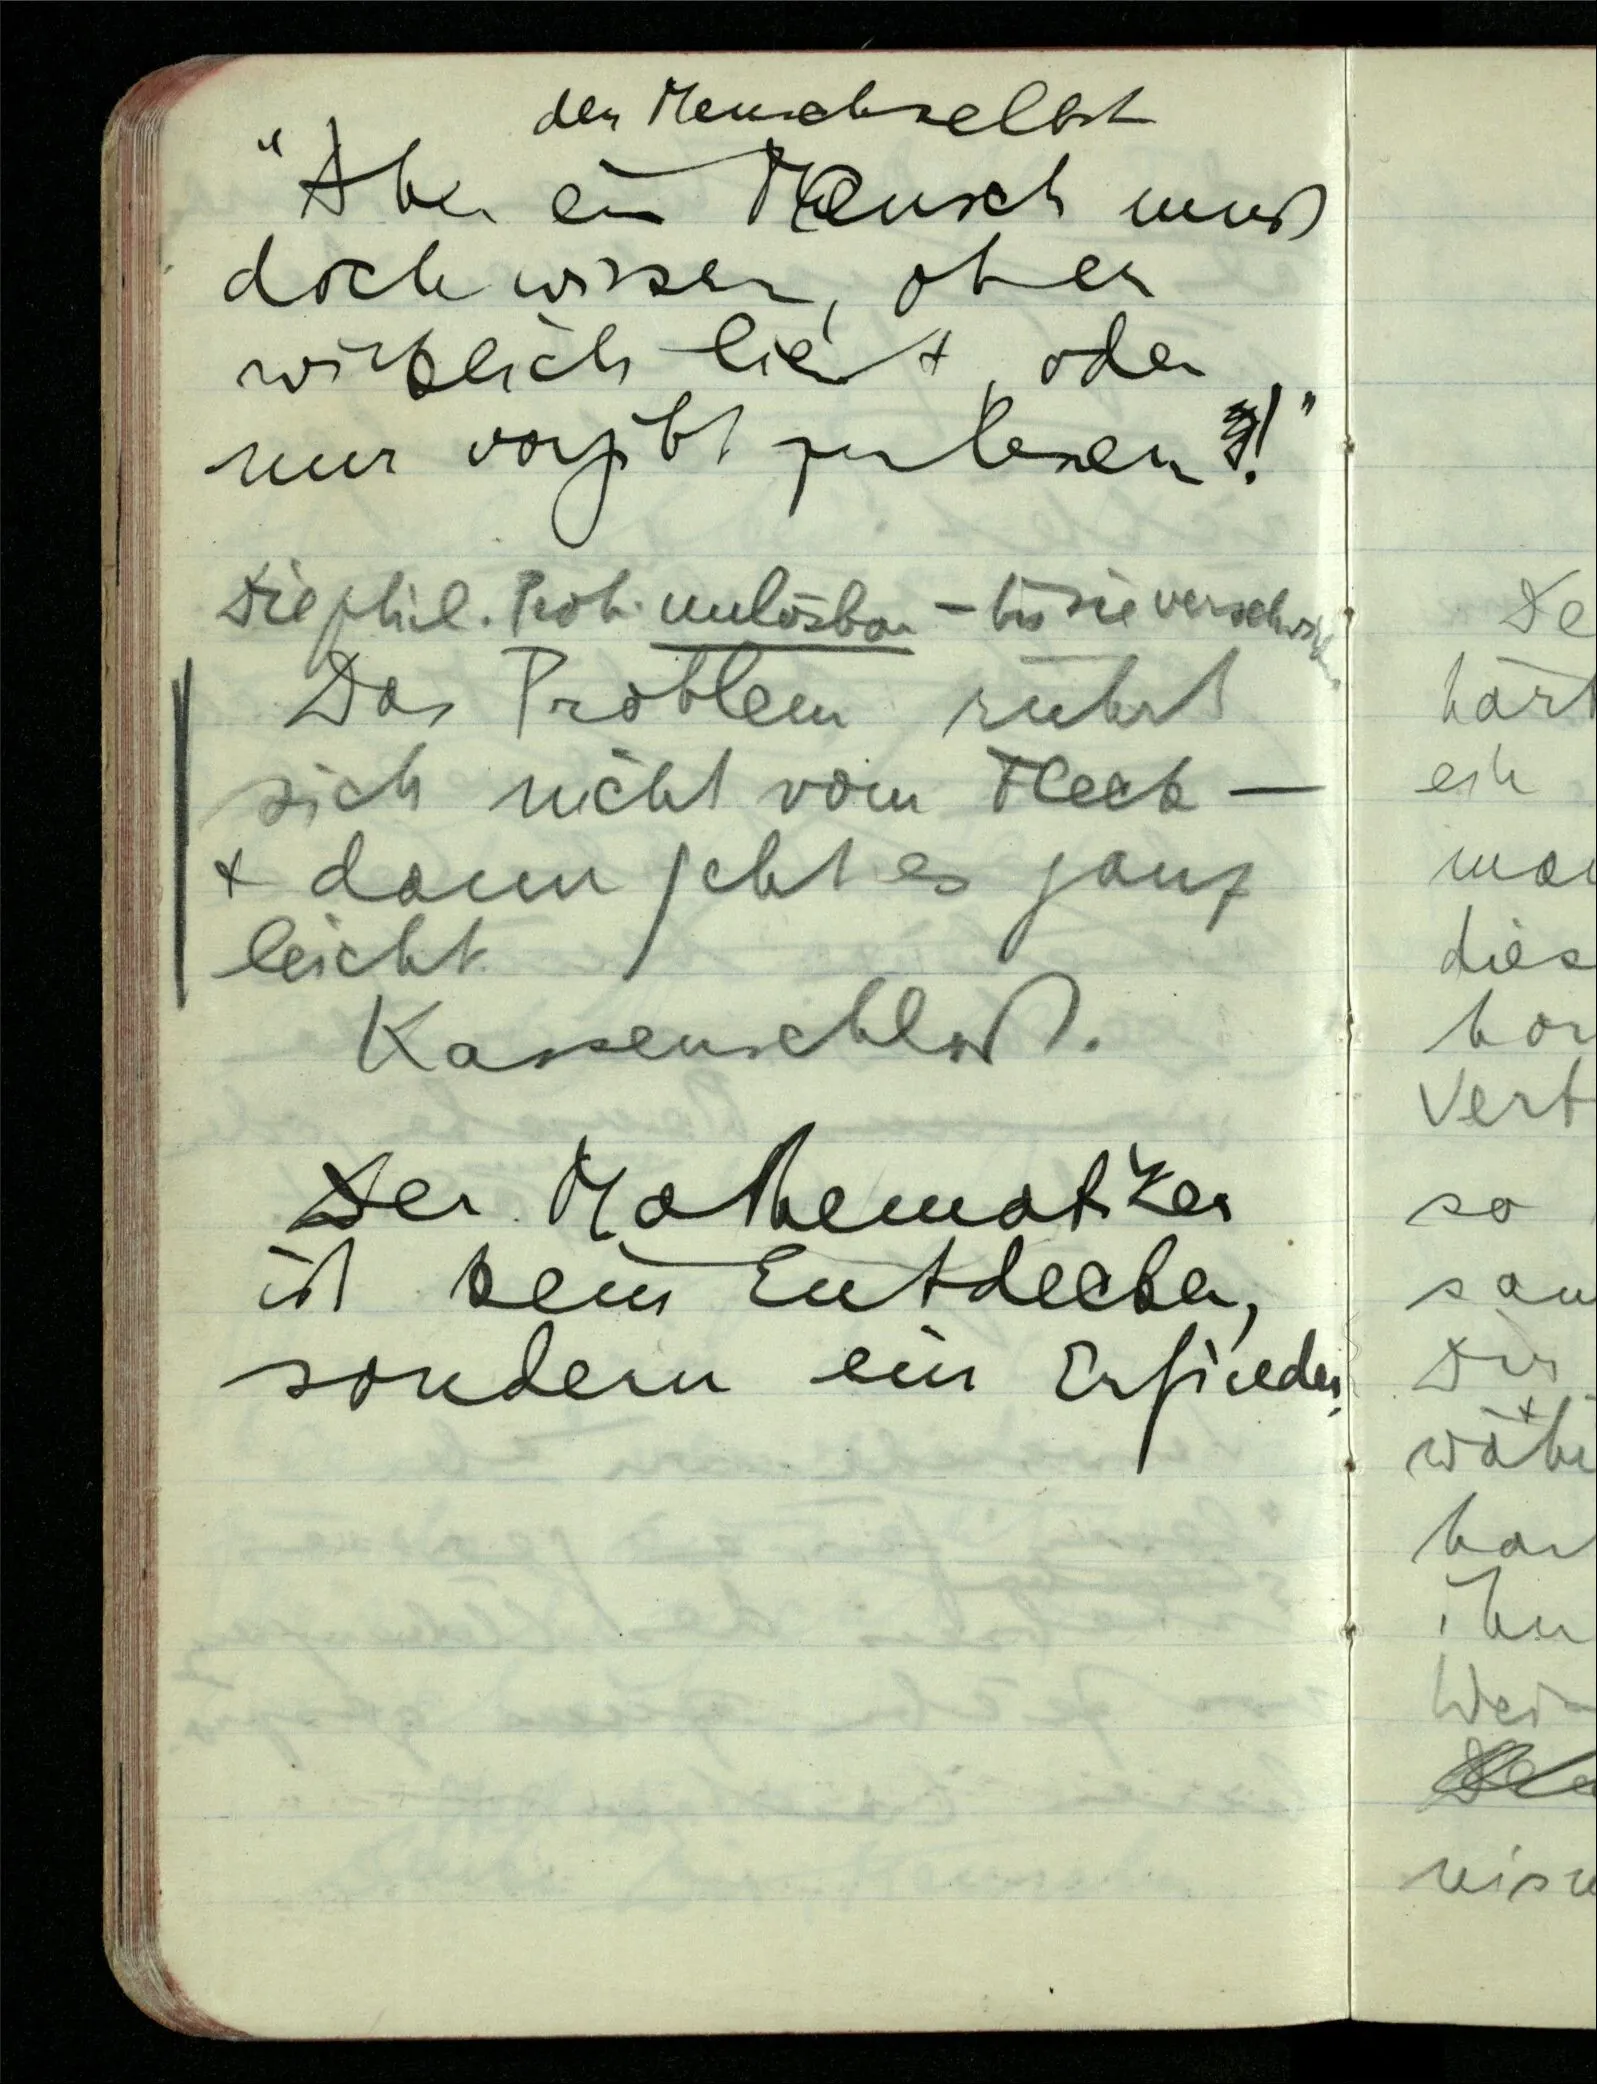 der Mensch selbst
"Aber ein Mensch muß
doch wissen, ob er
wirklich liest, oder
nur vorgibt zu lesen!"
Die phil. Prob. unlösbar – bis sie verschwinden
Das Problem rührt
sich nicht vom Fleck –
+ dann geht es ganz
leicht.
Kassenschloß.
Der Mathematiker
ist kein Entdecker,
sondern ein Erfinder.
ein
so